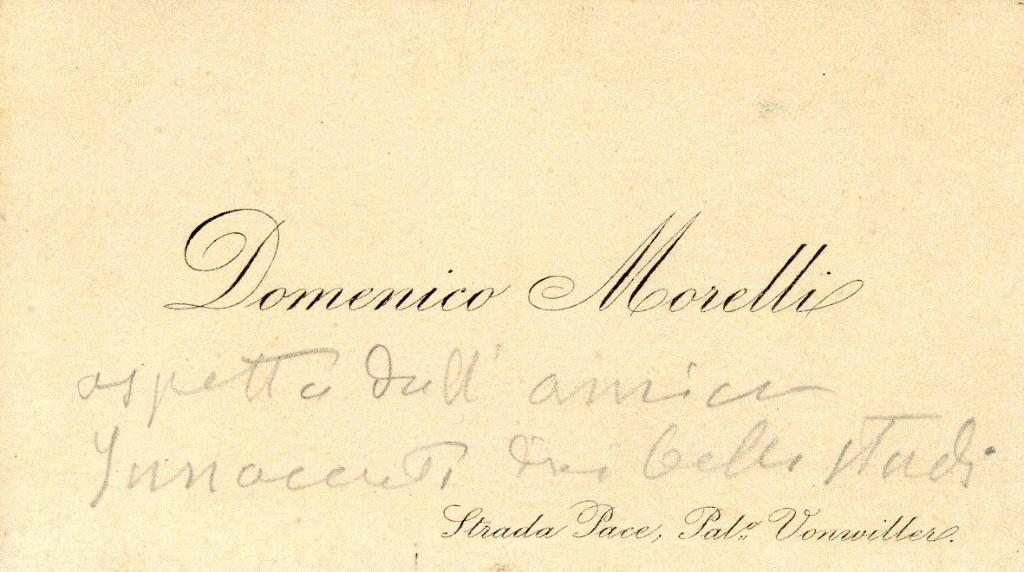 Domenico Morelli
aspetta dall' amico
Innocenti dei belli studi
Strada Pace, Pal.º Vonwiller.